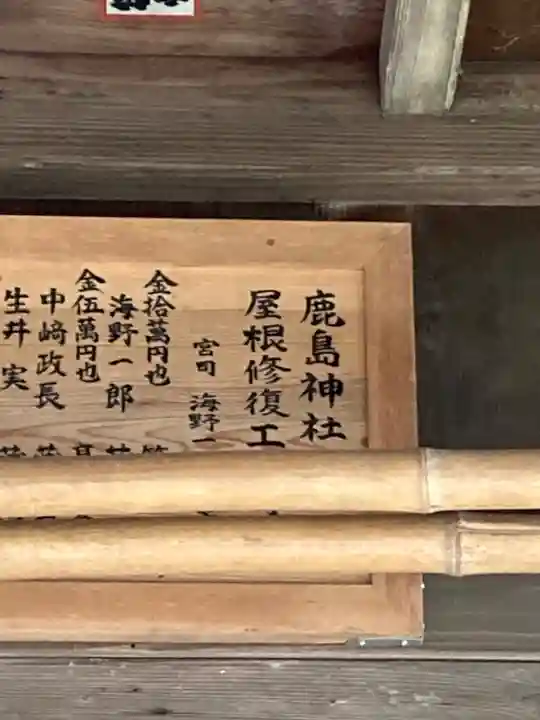 鹿島神社
屋根修復工
宮司 海野一
金拾萬円也
海野一郎
金伍萬円也
中﨑政長
生井実